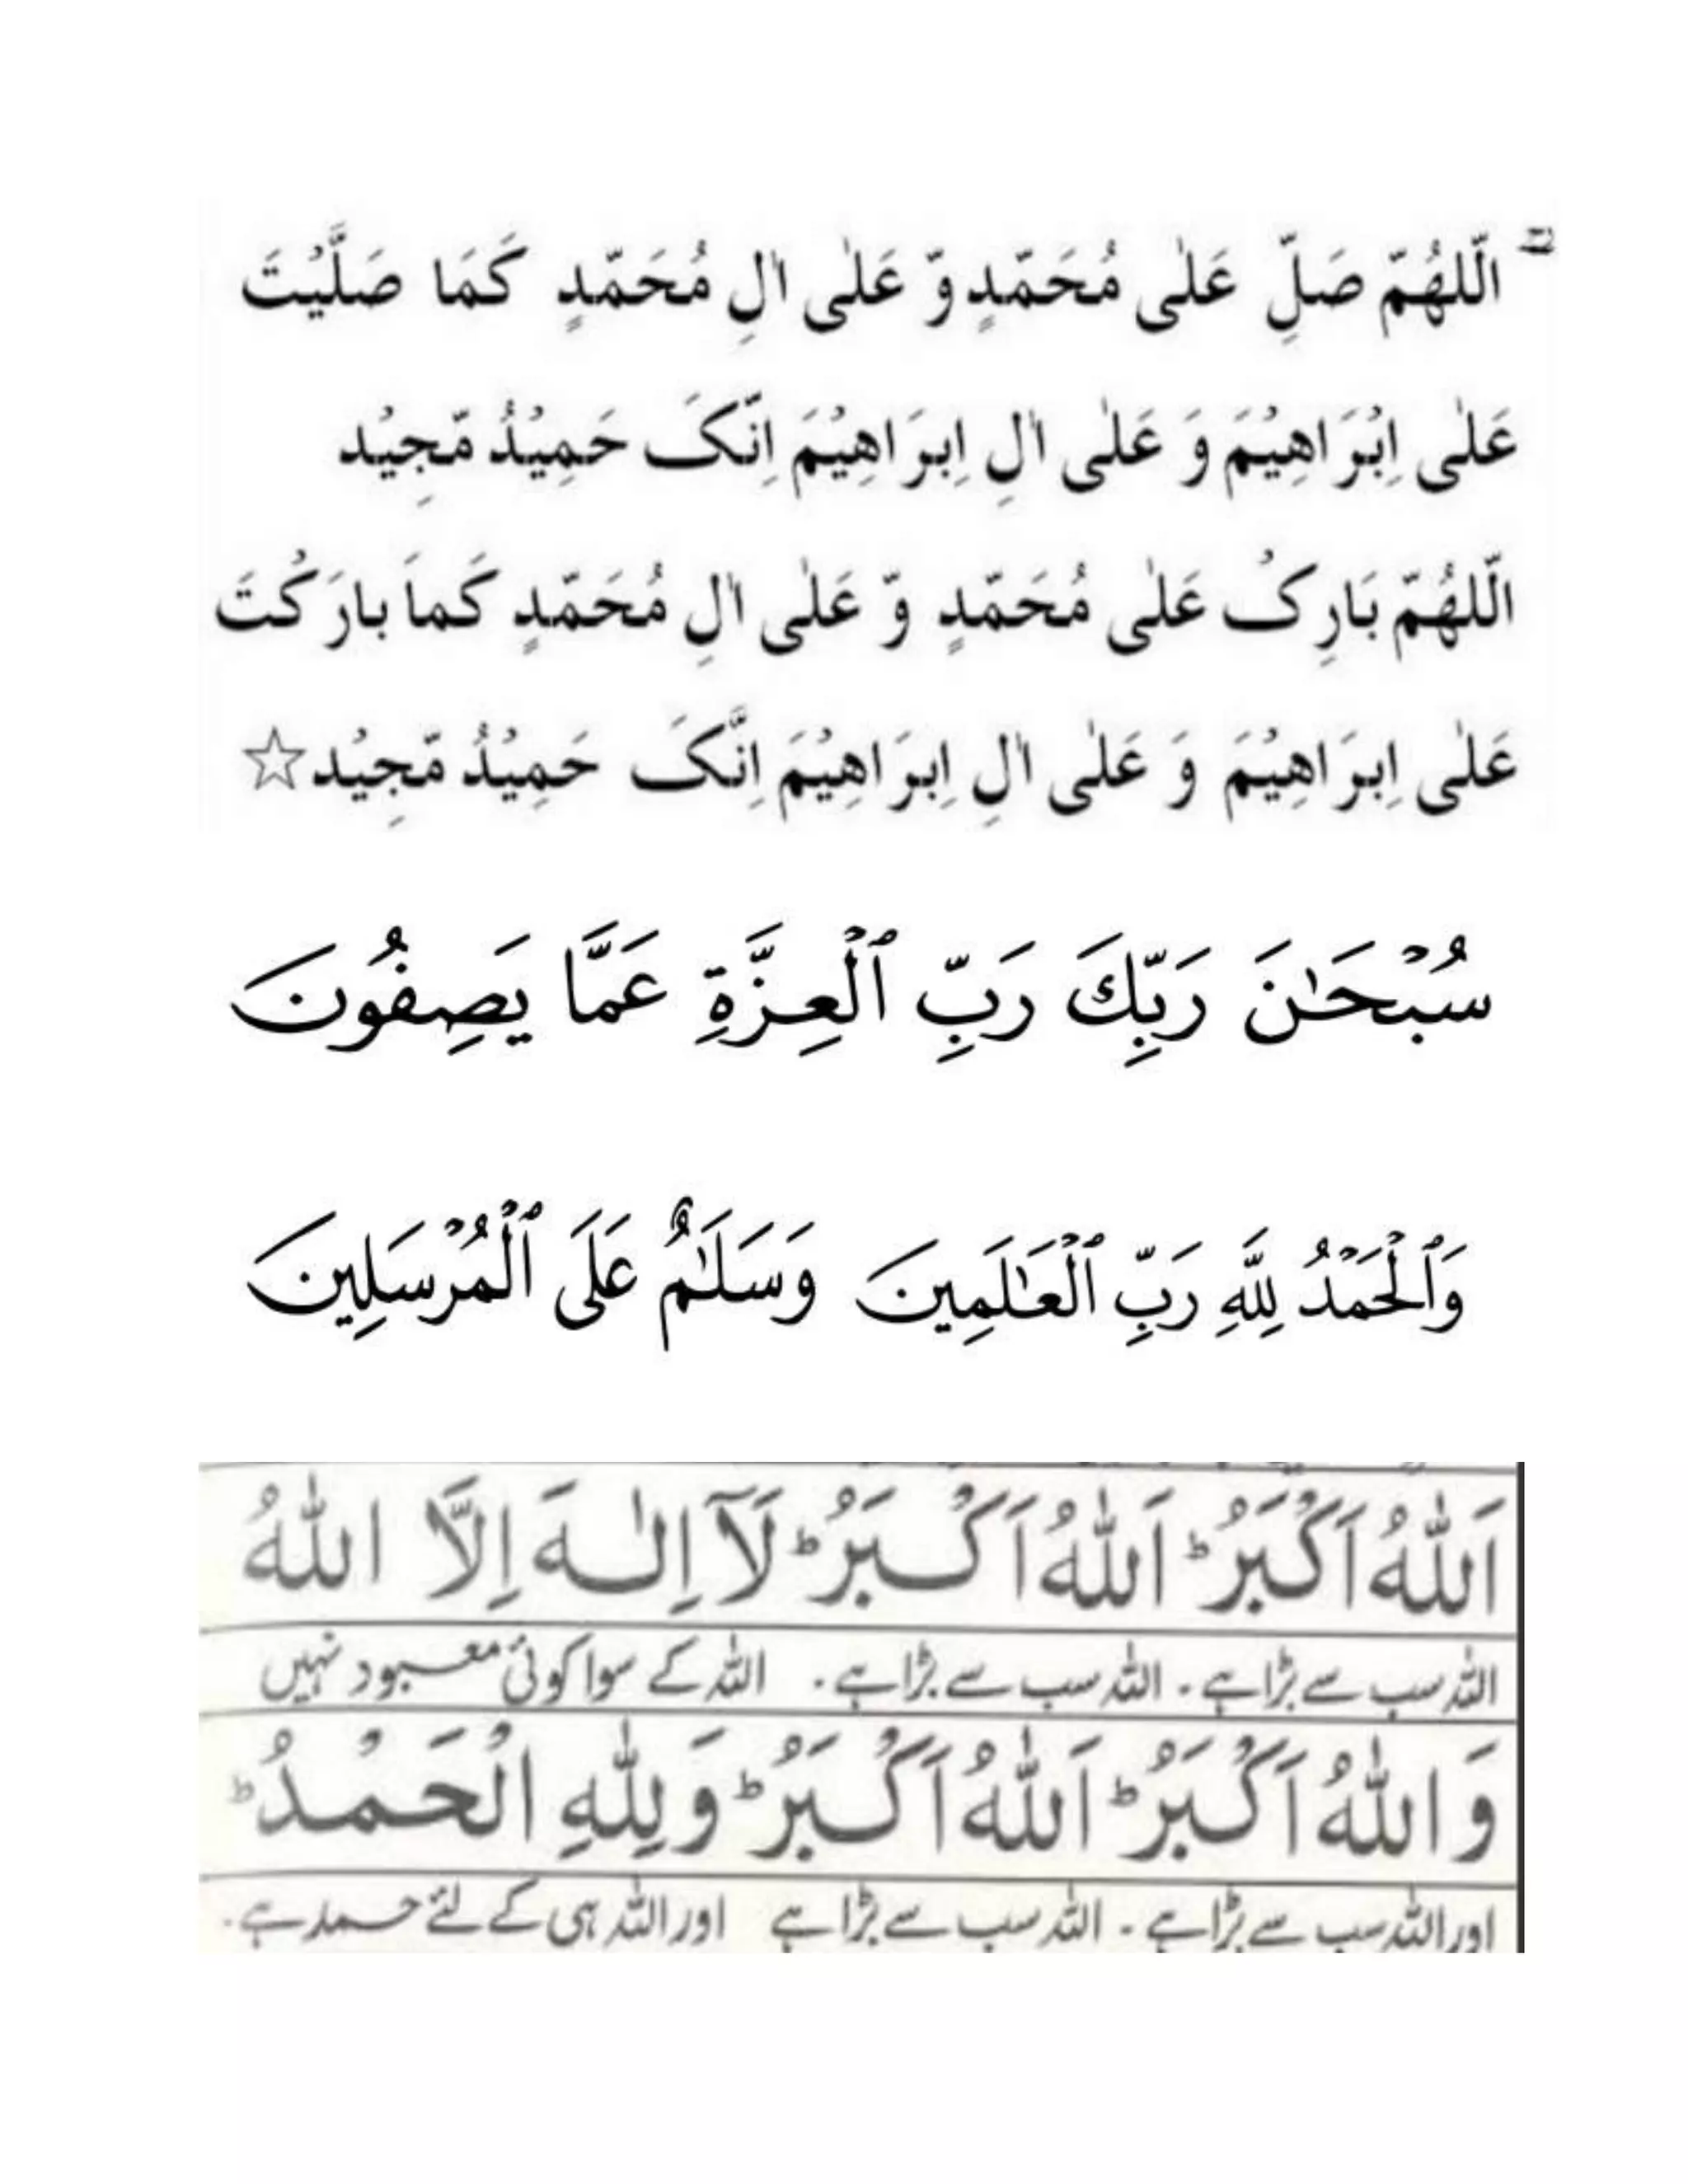 الّلهُمّ صَلِّ عَلٰى مُحَمّدٍ وّ عَلٰى اٰلِ مُحَمّدٍ كَمَا صَلَّيْتَ
عَلٰى اِبْرَاهِيْمَ وَ عَلٰى اٰلِ اِبرَاهِيْمَ اِنّکَ حَمِيْدُ مّجِيْد
الّلهُمّ بَارِکْ عَلٰى مُحَمّدٍ وّ عَلٰى اٰلِ مُحَمّدٍ كَماَ بارَكْتَ
عَلٰى اِبرَاهِيْمَ وَ عَلٰى اٰلِ اِبرَاهِيْمَ اِنَّکَ حَمِيْدُ مّجِيْد☆
سُبْحَٰنَ رَبِّكَ رَبِّ ٱلْعِزَّةِ عَمَّا يَصِفُونَ
وَٱلْحَمْدُ لِلَّهِ رَبِّ ٱلْعَٰلَمِينَ وَسَلَٰمٌ عَلَى ٱلْمُرْسَلِينَ
اَللّٰهُ اَكْبَرُ ؕ اَللّٰهُ اَكْبَرُ ؕ لَآ اِلٰهَ اِلَّا اللّٰهُ
اللہ سب سے بڑا ہے۔ اللہ سب سے بڑا ہے۔ اللہ کے سوا کوئی معبود نہیں
وَ اللّٰهُ اَكْبَرُ ؕ اَللّٰهُ اَكْبَرُ ؕ وَلِلّٰهِ الْحَمْدُ ؕ
اور اللہ سب سے بڑا ہے۔ اللہ سب سے بڑا ہے اور اللہ ہی کے لئے حمد ہے۔